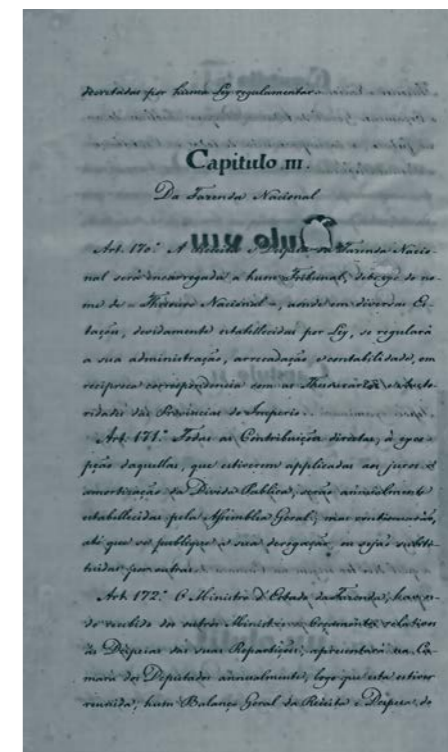 decretadas por huma Ley regulamentar.
Capitulo III.
Da Fazenda Nacional
Art. 170.º A Receita e Despeza da Fazenda Nacio-
nal será encarregada a hum Tribunal, debaixo do no-
me de "Thesouro Nacional", aonde em diversas Es-
taçoens, devidamente estabellecidas por Ley, se regulará
a sua administração, arrecadação, e contabilidade, em
reciproca correspondencia com as Thesourarias, e Autho-
ridades das Provincias do Imperio.
Art. 171.º Todas as Contribuiçoens directas, á exce-
pção daquellas, que estiverem applicadas aos juros, e
amortização da Divida Publica, serão annualmente
estabellecidas pela Assemblea Geral; mas continuarão,
até que se publique a sua derogação, ou sejão substi-
tuidas por outras.
Art. 172.º O Ministro d'Estado da Fazenda, haven-
do recebido dos outros Ministros os Orçamentos relativos
ás Despezas das suas Repartiçoens, apresentará na Ca-
mara dos Deputados annualmente, logo que esta estiver
reunida, hum Balanço Geral da Receita e Despeza do